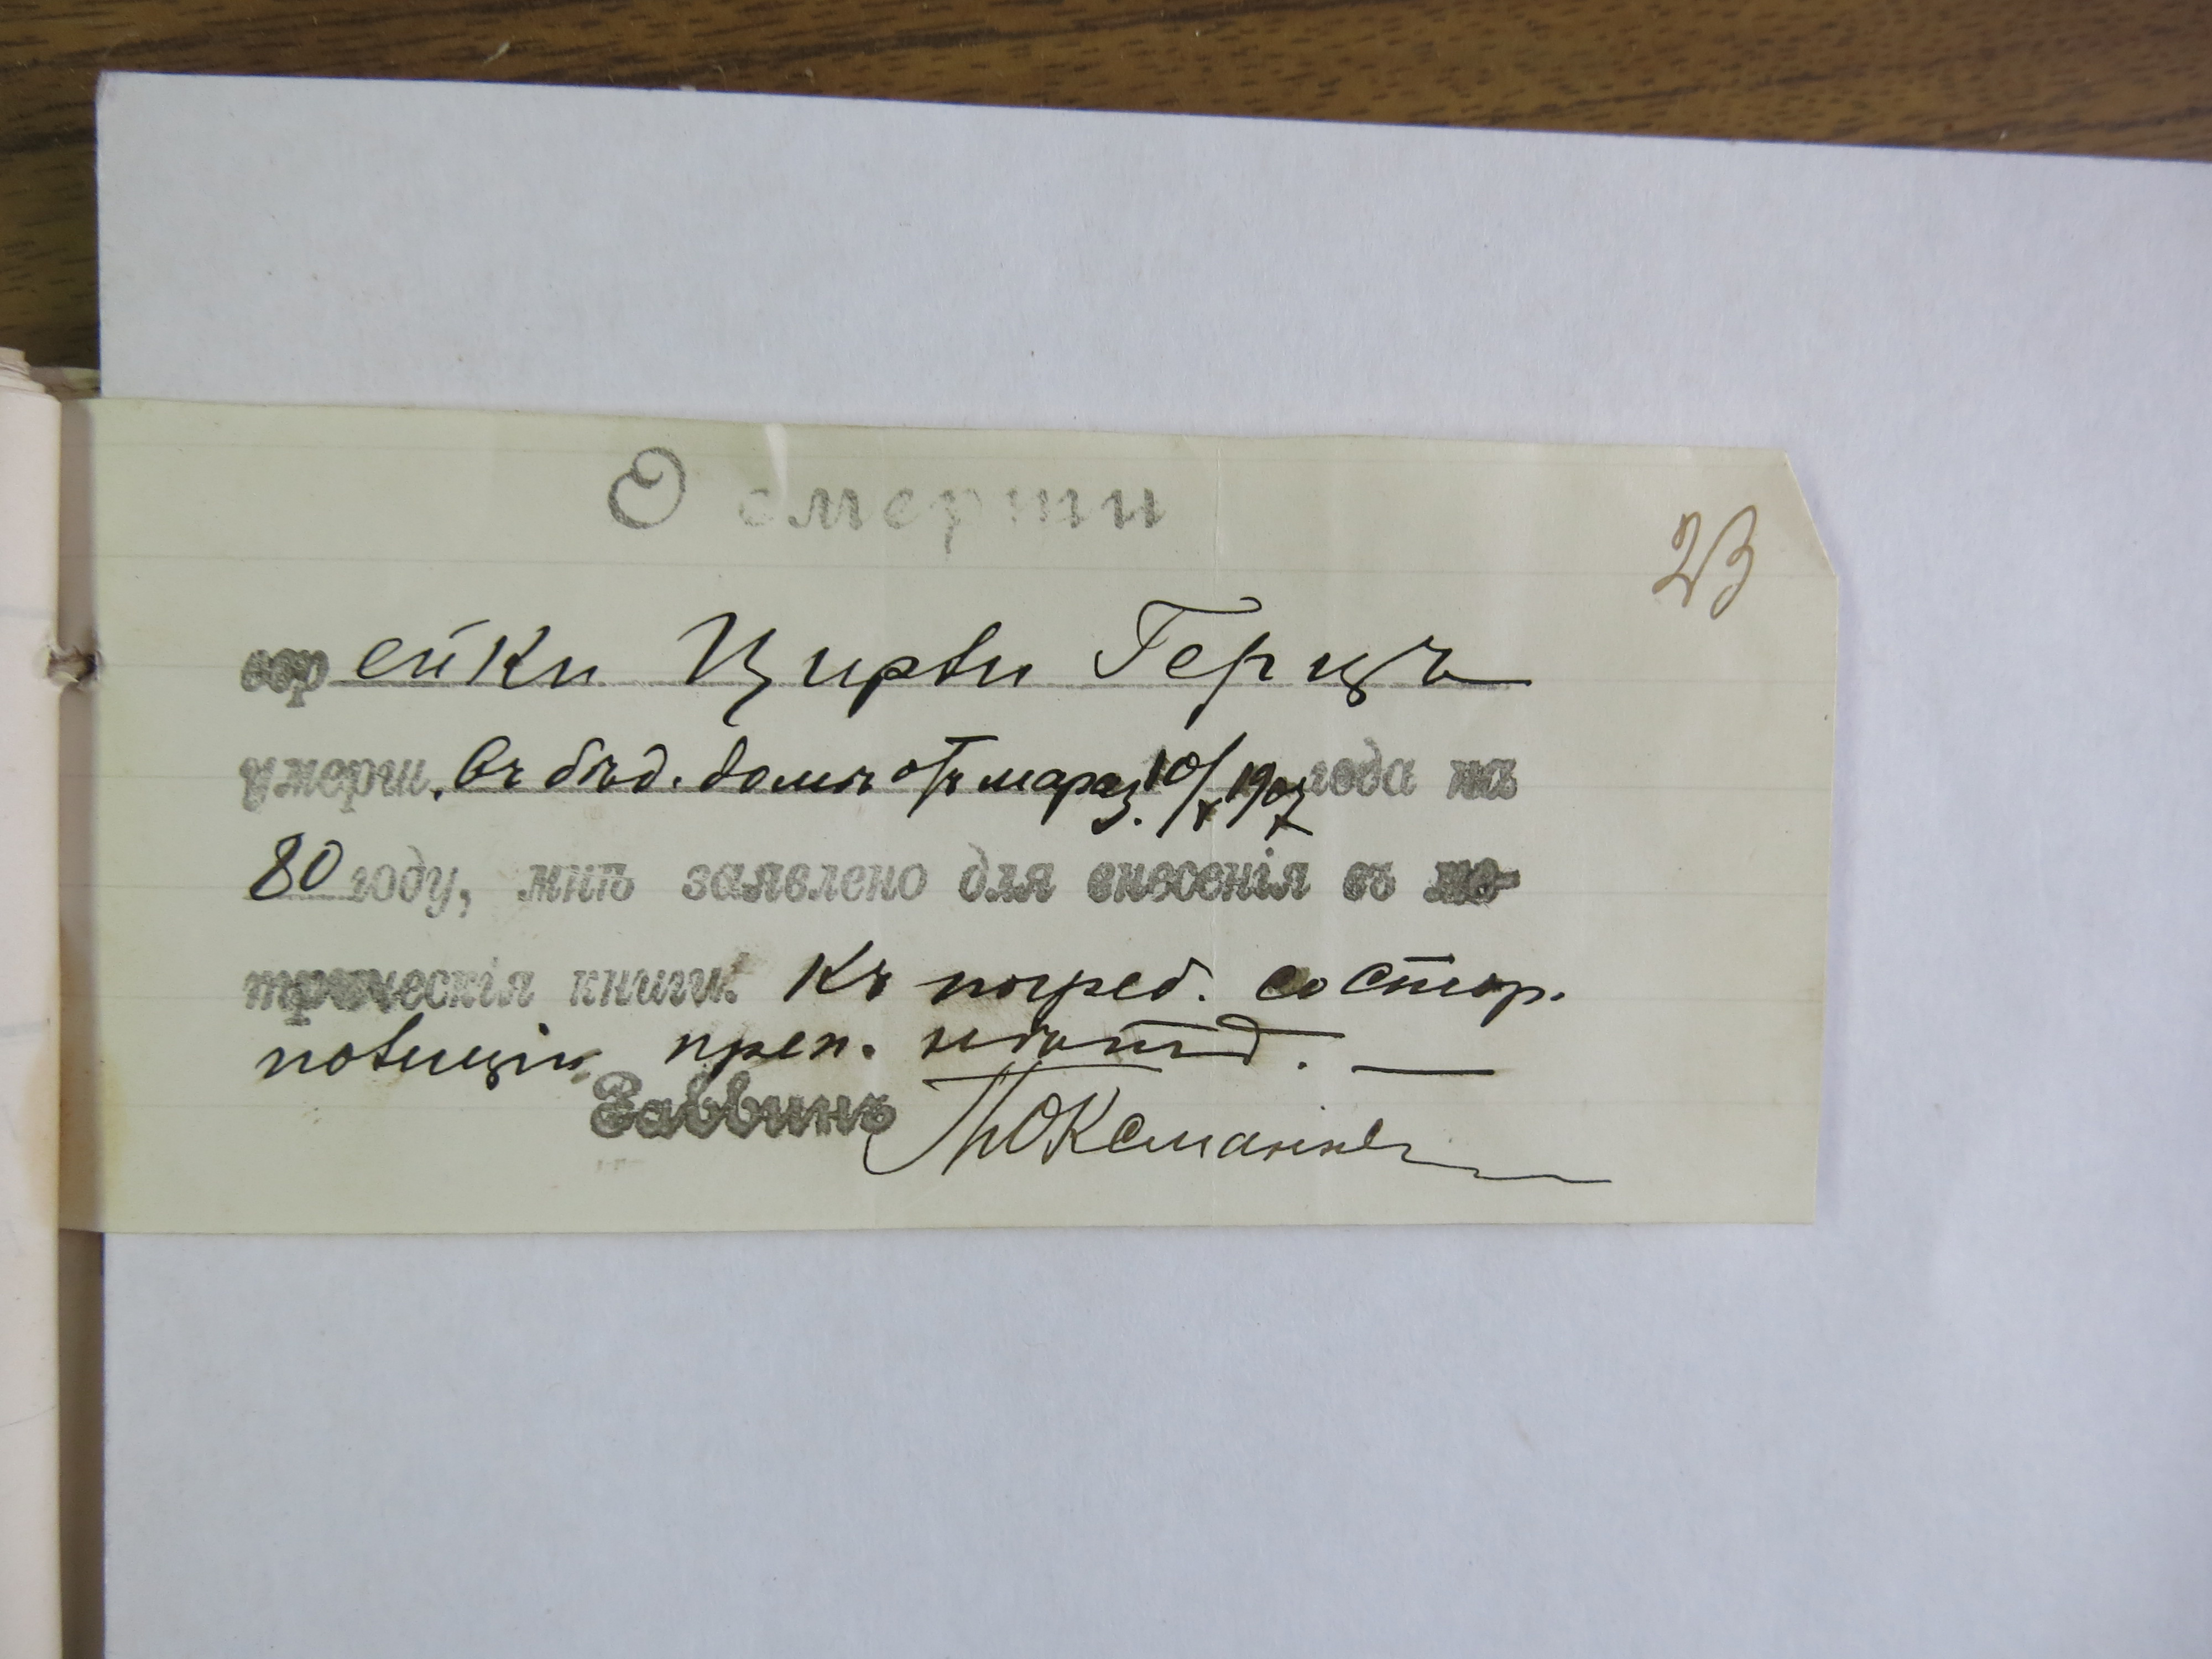 О смерти
23
еврейки Цирви Герцъ
умерш. въ бѣд. домѣ отъ мараз. 10/X 1907 года на
80 году, мнѣ заявлено для внесенія въ ме-
трическія книги. Къ погреб. со стор.
полиціи преп. нѣтъ.
Раввинъ